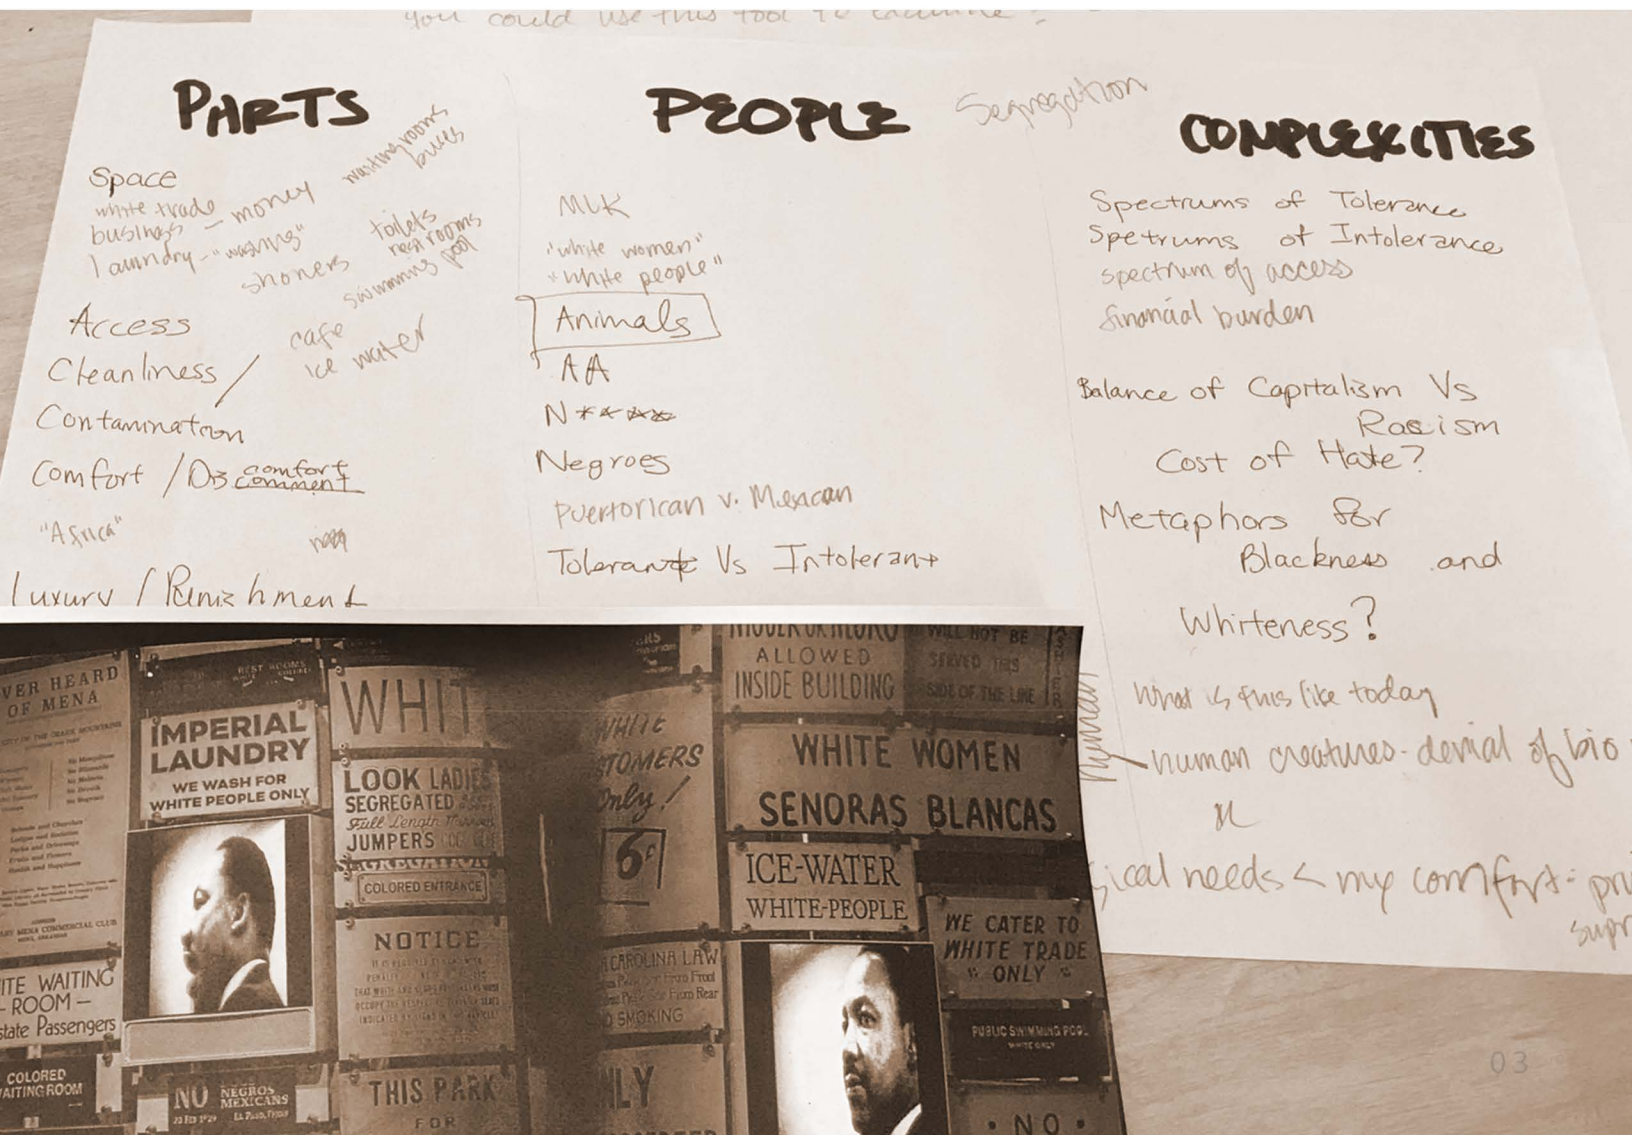 you could use this tool to examine?
PARTS
Space
white trade
business - money
laundry - "washing"
waiting rooms
buses
toilets
rest rooms
swimming pool
Access
cafe
ice water
Cleanliness /
Contamination
Comfort / Dis comfort
comment
"Africa"
Luxury / Punishment
PEOPLE
Segregation
MLK
"white women"
"white people"
Animals
AA
N*****
Negroes
Puertorican v. Mexican
Tolerant Vs Intolerant
COMPLEXITIES
Spectrums of Tolerance
Spetrums of Intolerance
spectrum of access
financial burden
Balance of Capitalism Vs
Racism
Cost of Hate?
Metaphors for
Blackness and
Whiteness?
What is this like today
human creatures - denial of bio
sical needs < my comfort = pri
supr
VER HEARD
OF MENA
MENA COMMERCIAL CLUB
MENA, ARKANSAS
ITE WAITING
- ROOM -
state Passengers
COLORED
AITING ROOM
REST ROOMS
IMPERIAL
LAUNDRY
WE WASH FOR
WHITE PEOPLE ONLY
NO NEGROS
MEXICANS
EL PASO, TEXAS
WHIT
LOOK LADIES
SEGREGATED
Full Length Mirrors
JUMPERS
SEGREGATION
COLORED ENTRANCE
NOTICE
THIS PARK
FOR
WHITE
STOMERS
Only!
6¢
CAROLINA LAW
From Front
From Rear
SMOKING
NLY
ALLOWED
INSIDE BUILDING
WILL NOT BE
SERVED THIS
SIDE OF THE LINE
WHITE WOMEN
SENORAS BLANCAS
ICE-WATER
WHITE-PEOPLE
WE CATER TO
WHITE TRADE
ONLY
PUBLIC SWIMMING POOL
WHITE ONLY
• NO •
03